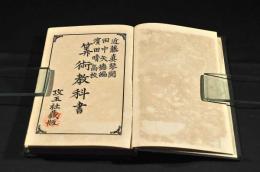 近藤真琴閲
田中矢徳編
濱田晴高校
算術教科書
攻玉社蔵版